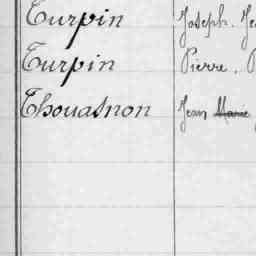 Turpin Joseph. Je
Turpin Pierre. P
Thouasnon Jean Marie